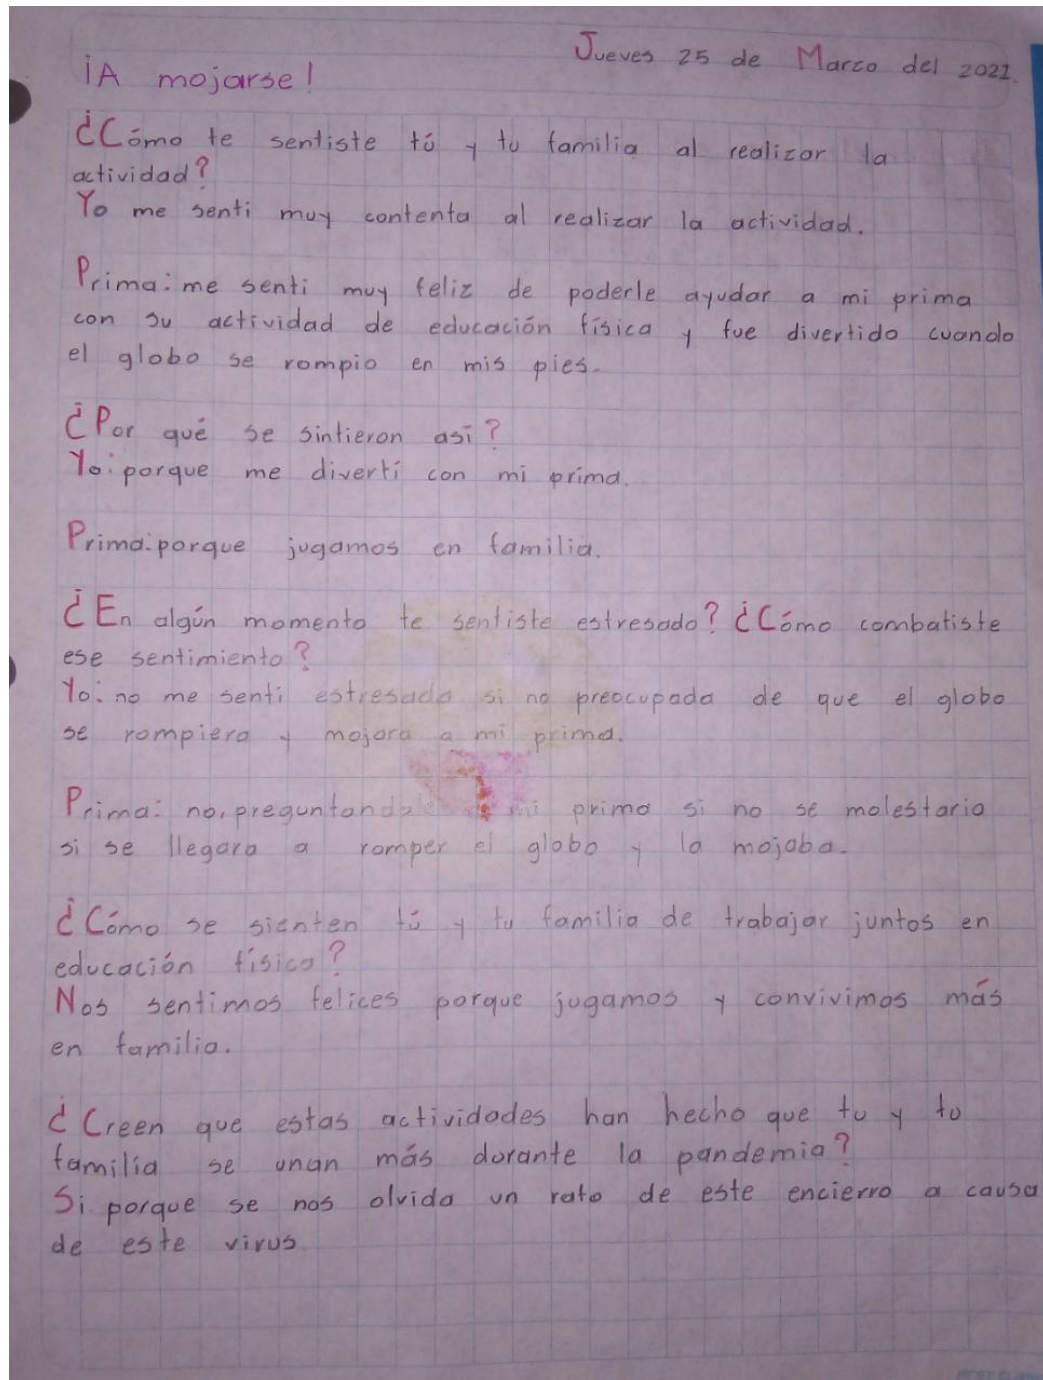 Jueves 25 de Marzo del 2021.
¡A mojarse!
¿Cómo te sentiste tú y tu familia al realizar la
actividad?
Yo me senti muy contenta al realizar la actividad.
Prima: me senti muy feliz de poderle ayudar a mi prima
con su actividad de educación física y fue divertido cuando
el globo se rompio en mis pies.
¿Por qué se sintieron asi?
Yo: porque me divertí con mi prima.
Prima: porque jugamos en familia.
¿En algún momento te sentiste estresado? ¿Cómo combatiste
ese sentimiento?
Yo: no me senti estresada si no preocupada de que el globo
se rompiera y mojara a mi prima.
Prima: no, preguntandole a mi prima si no se molestaria
si se llegara a romper el globo y la mojaba.
¿Cómo se sienten tú y tu familia de trabajar juntos en
educación física?
Nos sentimos felices porque jugamos y convivimos más
en familia.
¿Creen que estas actividades han hecho que tu y tu
familia se unan más durante la pandemia?
Si porque se nos olvida un rato de este encierro a causa
de este virus